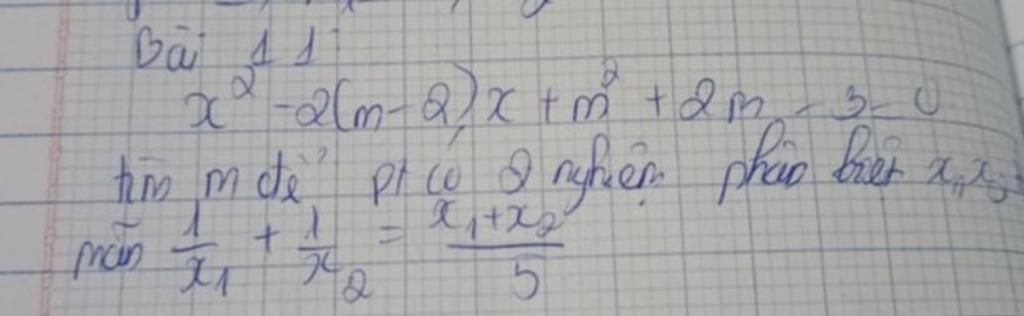 Bài 11:
x² - 2(m - 2)x + m² + 2m - 3 = 0
tìm m để pt có 2 nghiệm phân biệt x₁, x₂
mãn 1/x₁ + 1/x₂ = (x₁ + x₂)/5